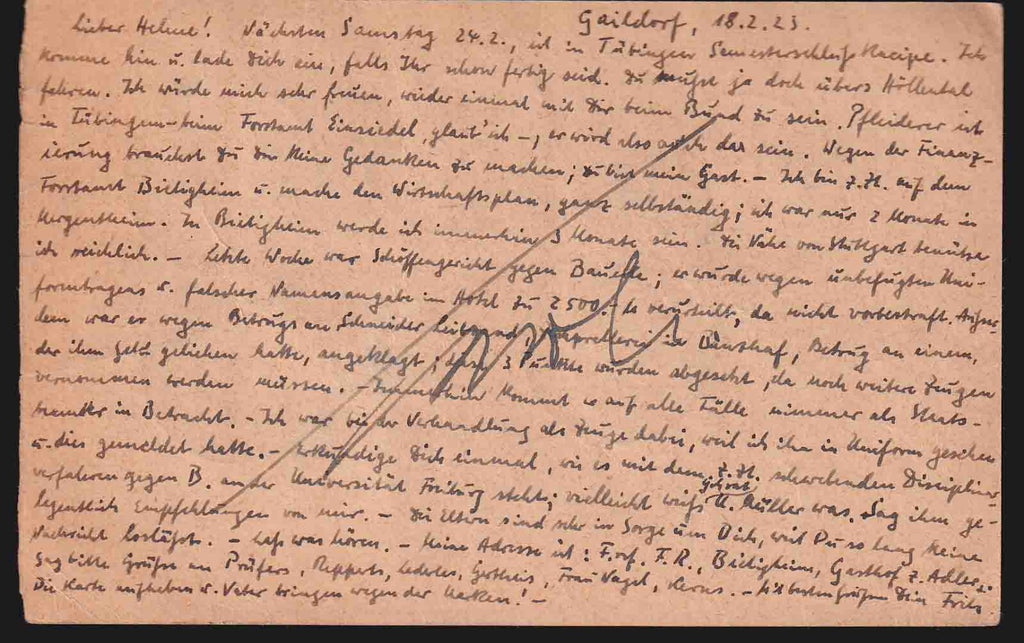 Gaildorf, 18.2.23.
Lieber Helmut! Nächsten Samstag 24.2., ist in Tübingen Semesterschlußkneipe. Ich
komme hin u. lade Dich ein, falls Ihr schon fertig seid. Du mußt ja doch übers Höllental
fahren. Ich würde mich sehr freuen, wieder einmal mit Dir beim Bund zu sein. Pfleiderer ist
in Tübingen - beim Forstamt Einsiedel, glaub' ich -, er wird also auch da sein. Wegen der Finanz-
ierung brauchst Du Dir keine Gedanken zu machen; Du bist mein Gast. - Ich bin z. Zt. auf dem
Forstamt Bietigheim u. mache den Wirtschaftsplan, ganz selbständig; ich war nur 2 Monate in
Mergentheim. In Bietigheim werde ich immerhin 3 Monate sein. Die Nähe von Stuttgart benütze
ich reichlich. - Letzte Woche war Schöffengericht gegen Bauerle; er wurde wegen unbefugten Uni-
formtragens u. falscher Namensangabe im Hotel zu 2500.- M verurteilt, da nicht vorbestraft. Außer
dem war er wegen Betrugs an Schneider, in Betrug an einem,
der ihm Geld geliehen hatte, angeklagt; diese 3 Punkte wurden abgesetzt, da noch weitere Zeugen
vernommen werden müssen. - Immerhin kommt er auf alle Fälle nimmer als Staats-
beamter in Betracht. - Ich war bei der Verhandlung als Zeuge dabei, weil ich ihn in Uniform gesehen
u. dies gemeldet hatte. - Erkundige Dich einmal, wie es mit dem z. Zt. schwebenden Disciplinar-
verfahren gegen B. an der Universität Freiburg steht; vielleicht weiß Geh.rat Müller was. Sag ihm ge-
legentlich Empfehlungen von mir. - Die Eltern sind sehr in Sorge um Dich, weil Du so lang keine
Nachricht losläßt. - Laß was hören. - Meine Adresse ist: F.R., Bietigheim, Gasthof z. Adler. -
Sag bitte Grüße an Prüfers, Repperts, Frau Nagel, Kerns. - Mit besten Grüßen Dein Fritz
Die Karte aufheben u. Vater bringen wegen der Marken! -